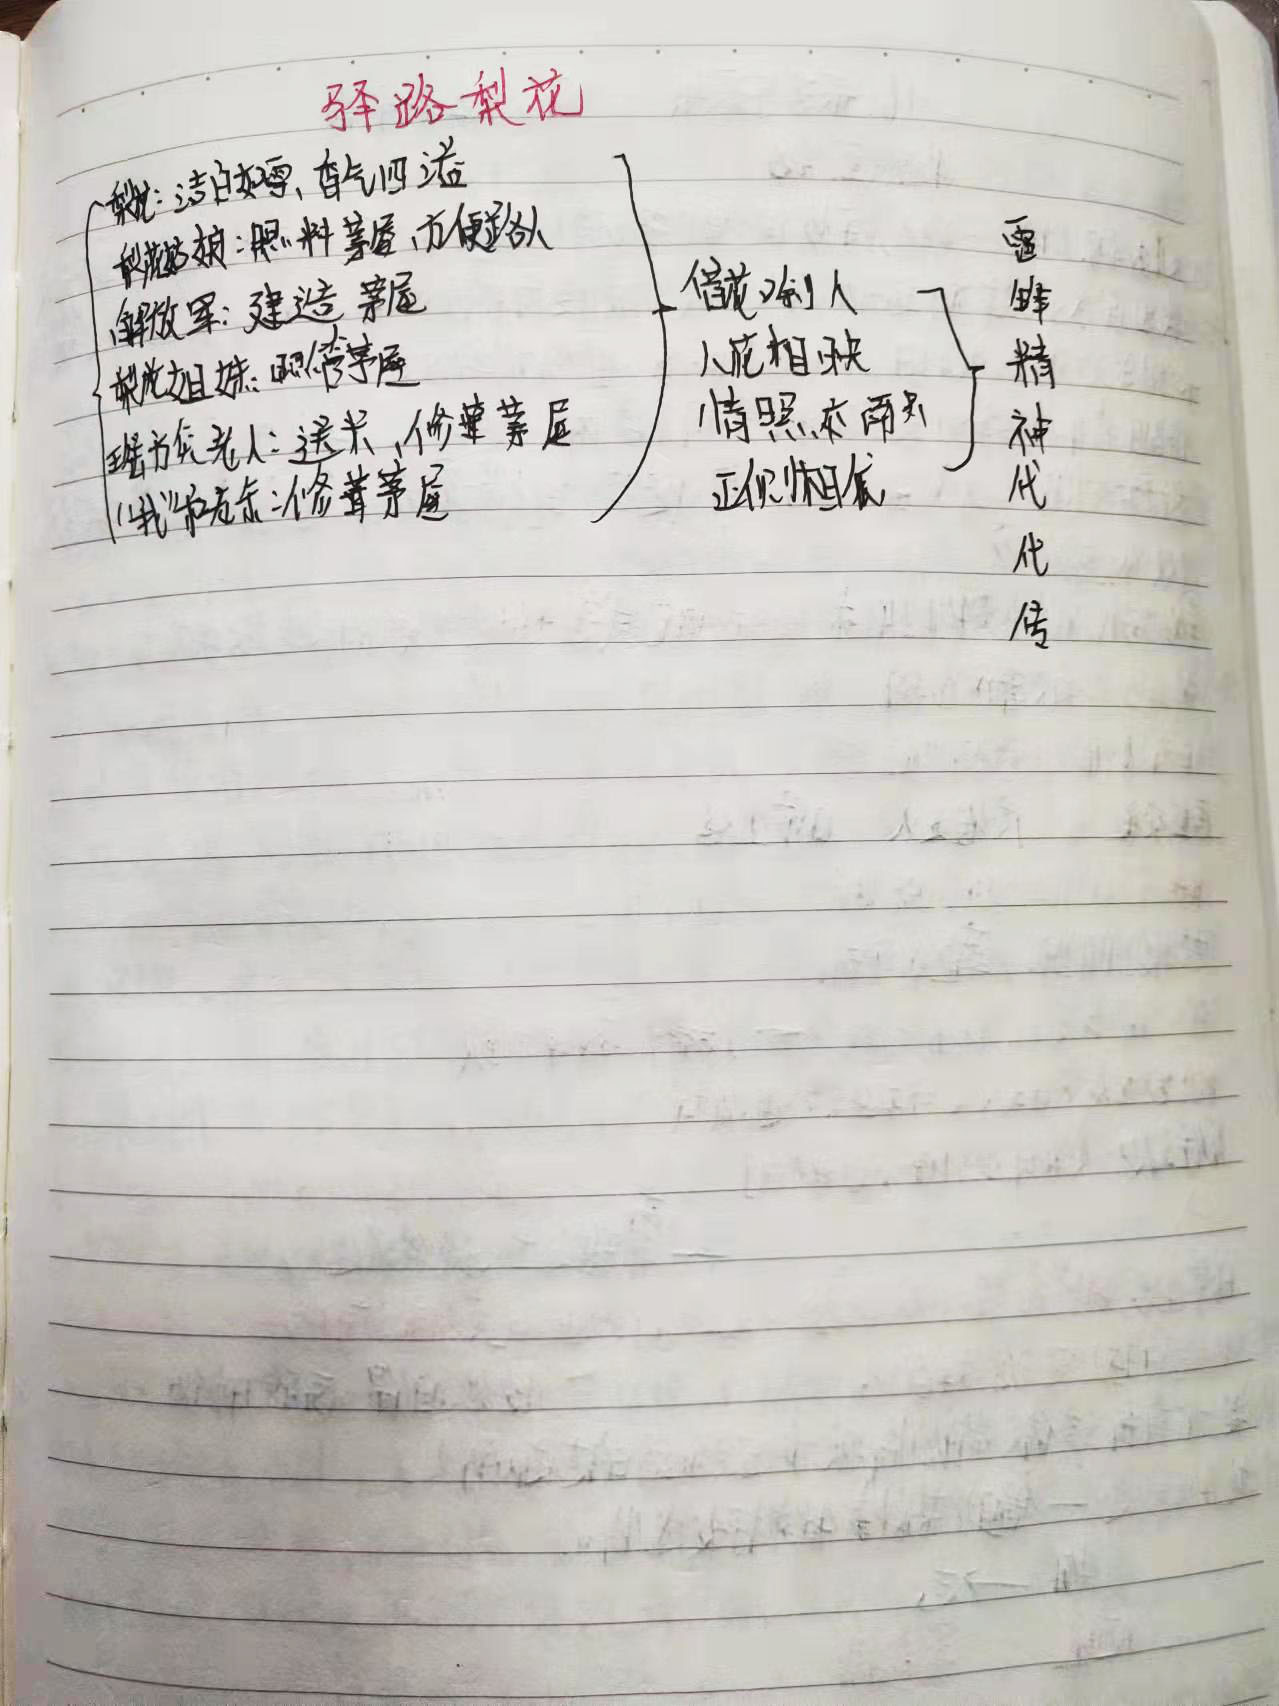 驿路梨花
梨花：洁白如雪、香气四溢
梨花姑娘：照料茅屋、方便路人
解放军：建造茅屋
梨花姐妹：照管茅屋
瑶族老人：送米、修葺茅屋
“我”和老余：修葺茅屋
借花喻人
人花相映
情景交
正侧相
雷
锋
精
神
代
代
传